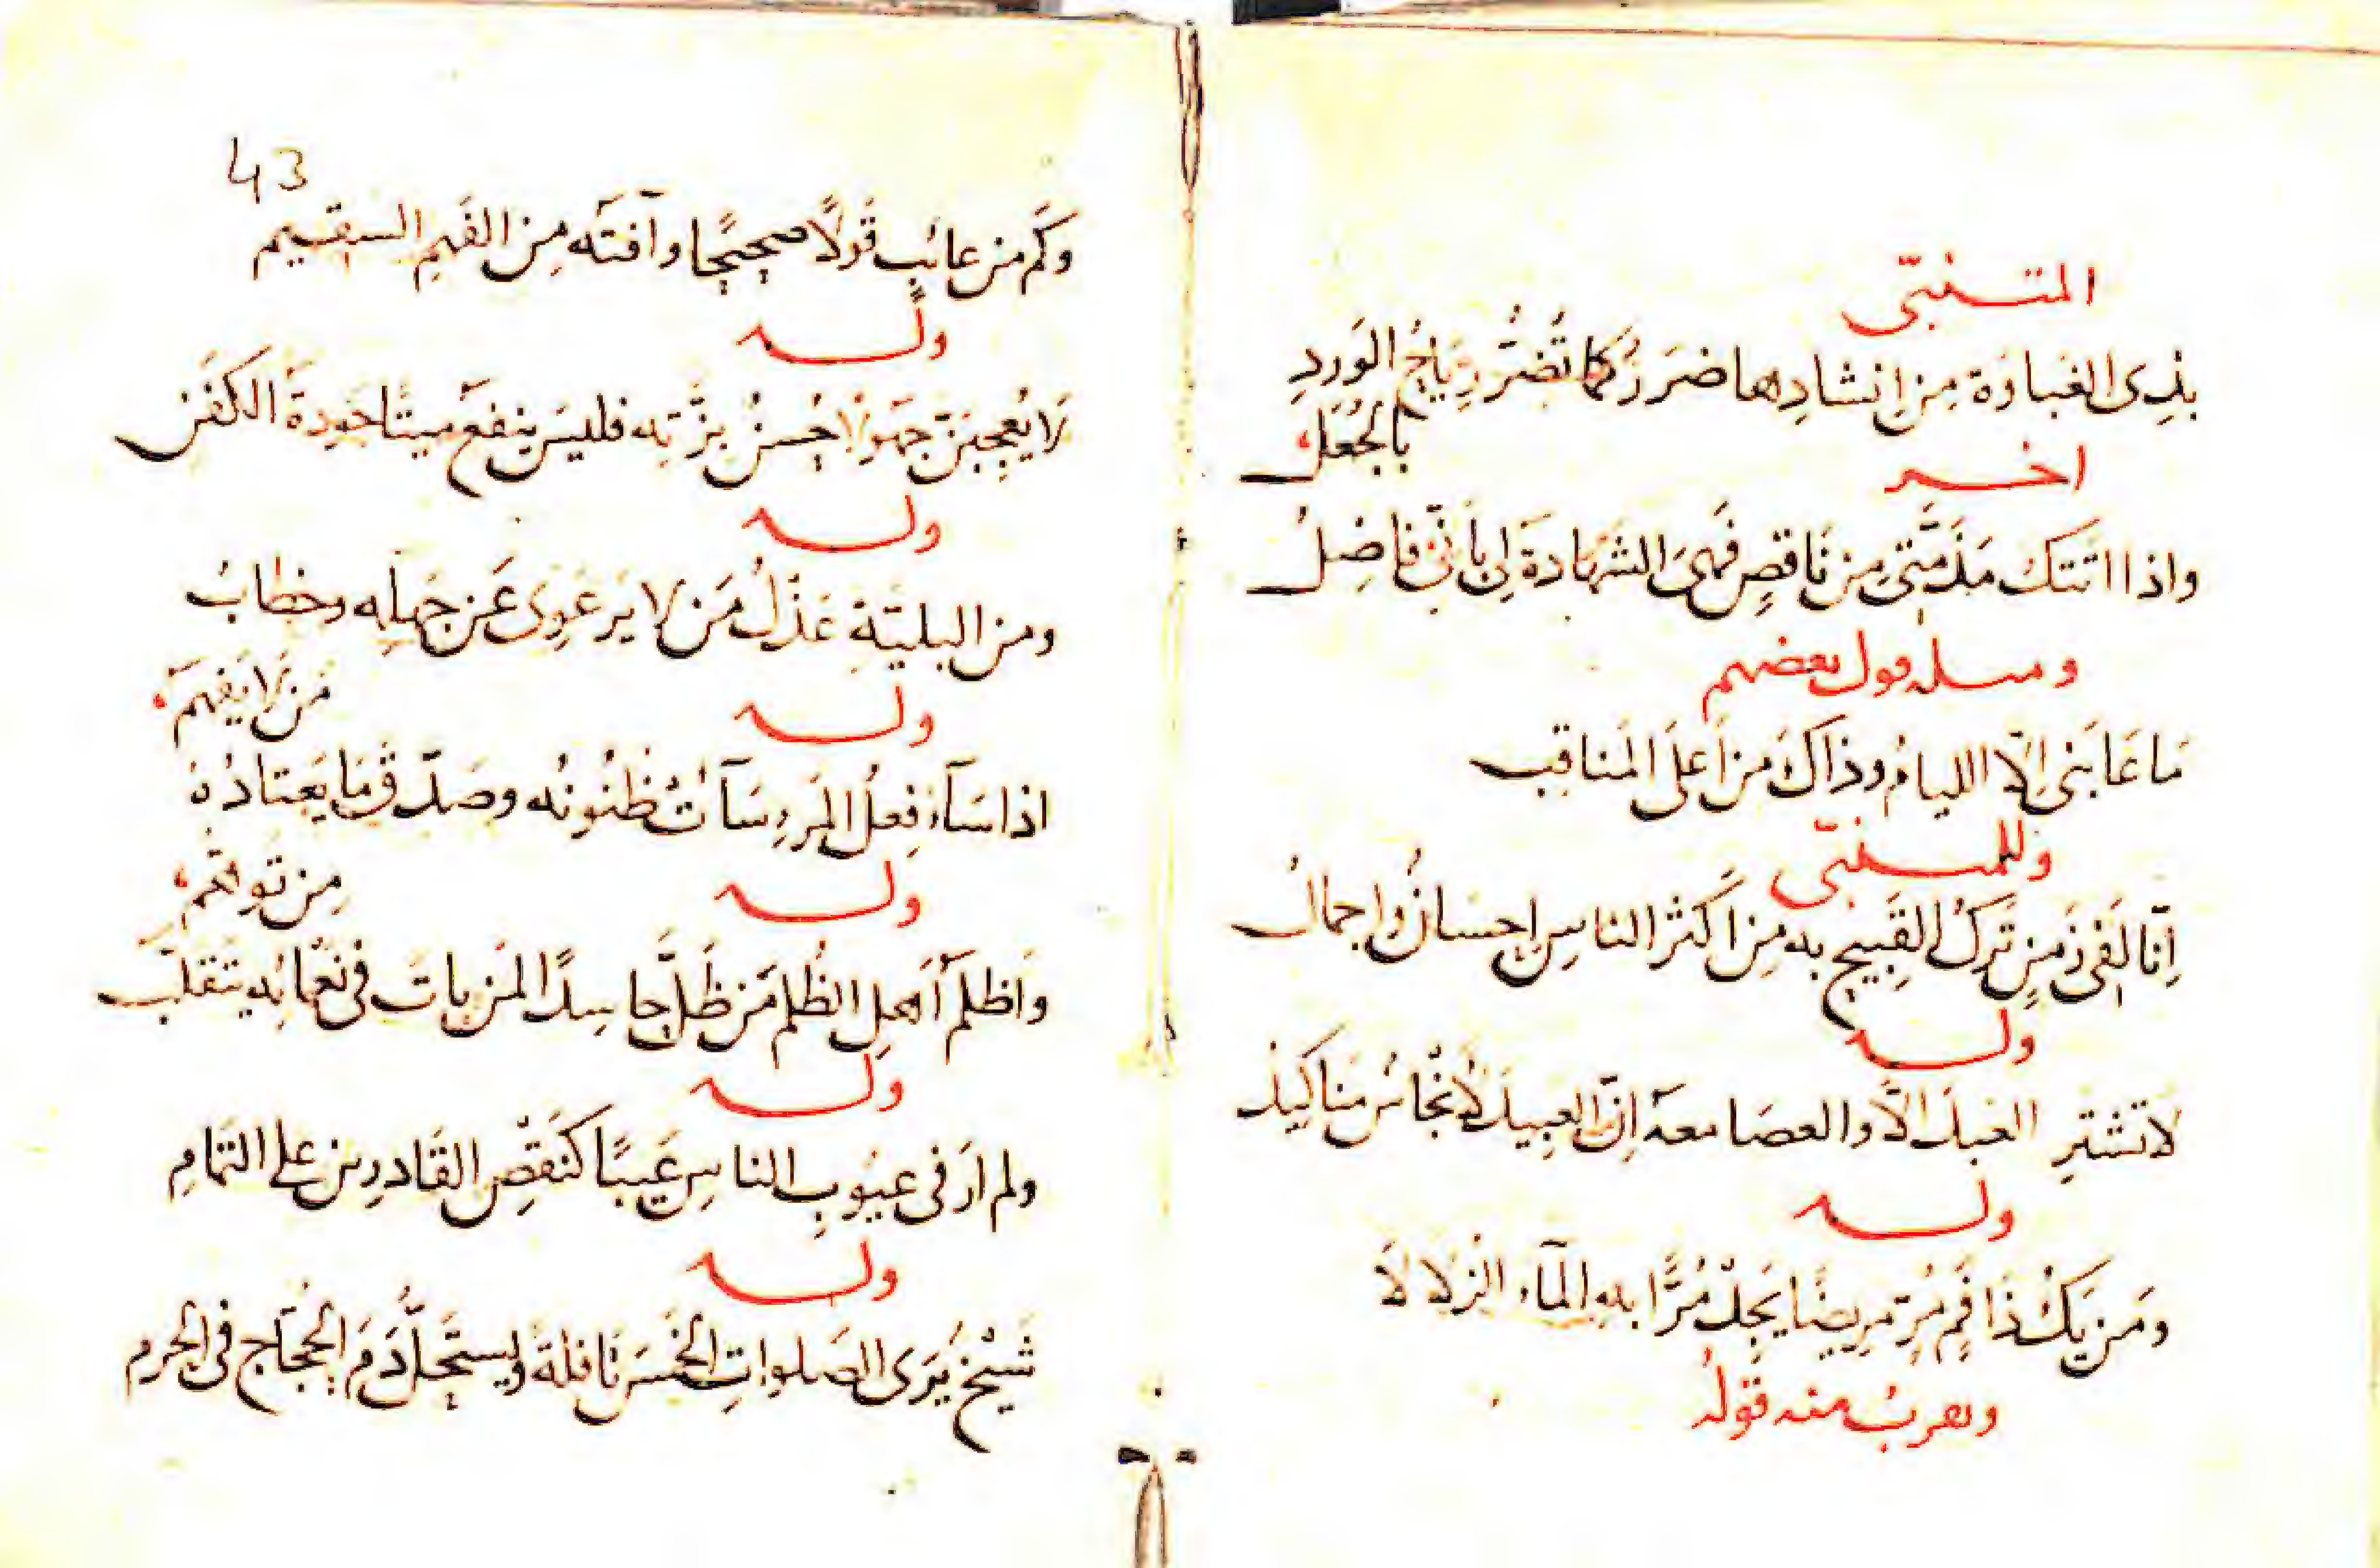 المتنبّي
بذِى الغباوَة مِن اِنشادِها ضرَرٌ كما تُضرُّ رِيَاحُ الوَردِ
بالجُعَلِ
اخر
واذا اتَتكَ مَذَمَّتى مِن نَاقصٍ فَهىَ الشَهَادةُ لِى بأنّى فاضِلُ
ومثله قول بعضهم
مَا عَابَنى اِلّا الليامُ وذاكَ مِن اَعلَى المَناقِب
وللمتنبّى
اِنّا لَفى زَمنٍ تَركُ القَبِيح به مِن اَكثر الناسِ اِحسَانٌ واِجمالُ
وله
لاَ تشترِ العَبدَ الاَّ والعصَا معهَ اِنّ العبِيدَ لاَنجاسٌ مَناكيدُ
وله
ومَن يَكُ ذَا فَمٍ مُرّ مرِيضٍ يَجِدْ مُرًّا بهِ المآءَ الزلالاَ
ويقربُ منه قَولُه
43
وكَم من عائبٍ قَولاً صحيحًا وآفتَه مِن الفَهمِ السقيم
وله
لاَ يُعجِبَنّ جهَولاً حُسنُ بزَّتِه فليسَ ينفعُ ميتًا جَودةُ الكَفَن
وله
ومن البليّةِ عَذلُ مَن لا يَرعَوِى عَن جَهلِه وخطابُ
مَن لاَ يَفهَم
وله
اذا سَآءَ فِعلُ المَرءِ سَآءَتْ ظُنُونُه وصَدّقَ مَا يَعتادُهُ
مِن تَوهّمِ
وله
وَاظلَمُ اَهلِ الظُلم مَن ظَلّ حاسِدًا لمَن بَاتَ فى نَعْمائِه يَتَقلّب
وله
ولم اَرَ فى عيُوبِ الناسِ عَيبًا كنَقصِ القَادرِين على التمَامِ
وله
شَيْخٌ يَرَى الصَلواتِ الخَمسَ نَافلةً ويستَحِلُّ دَمَ الحُجّاجِ فى الحَرم